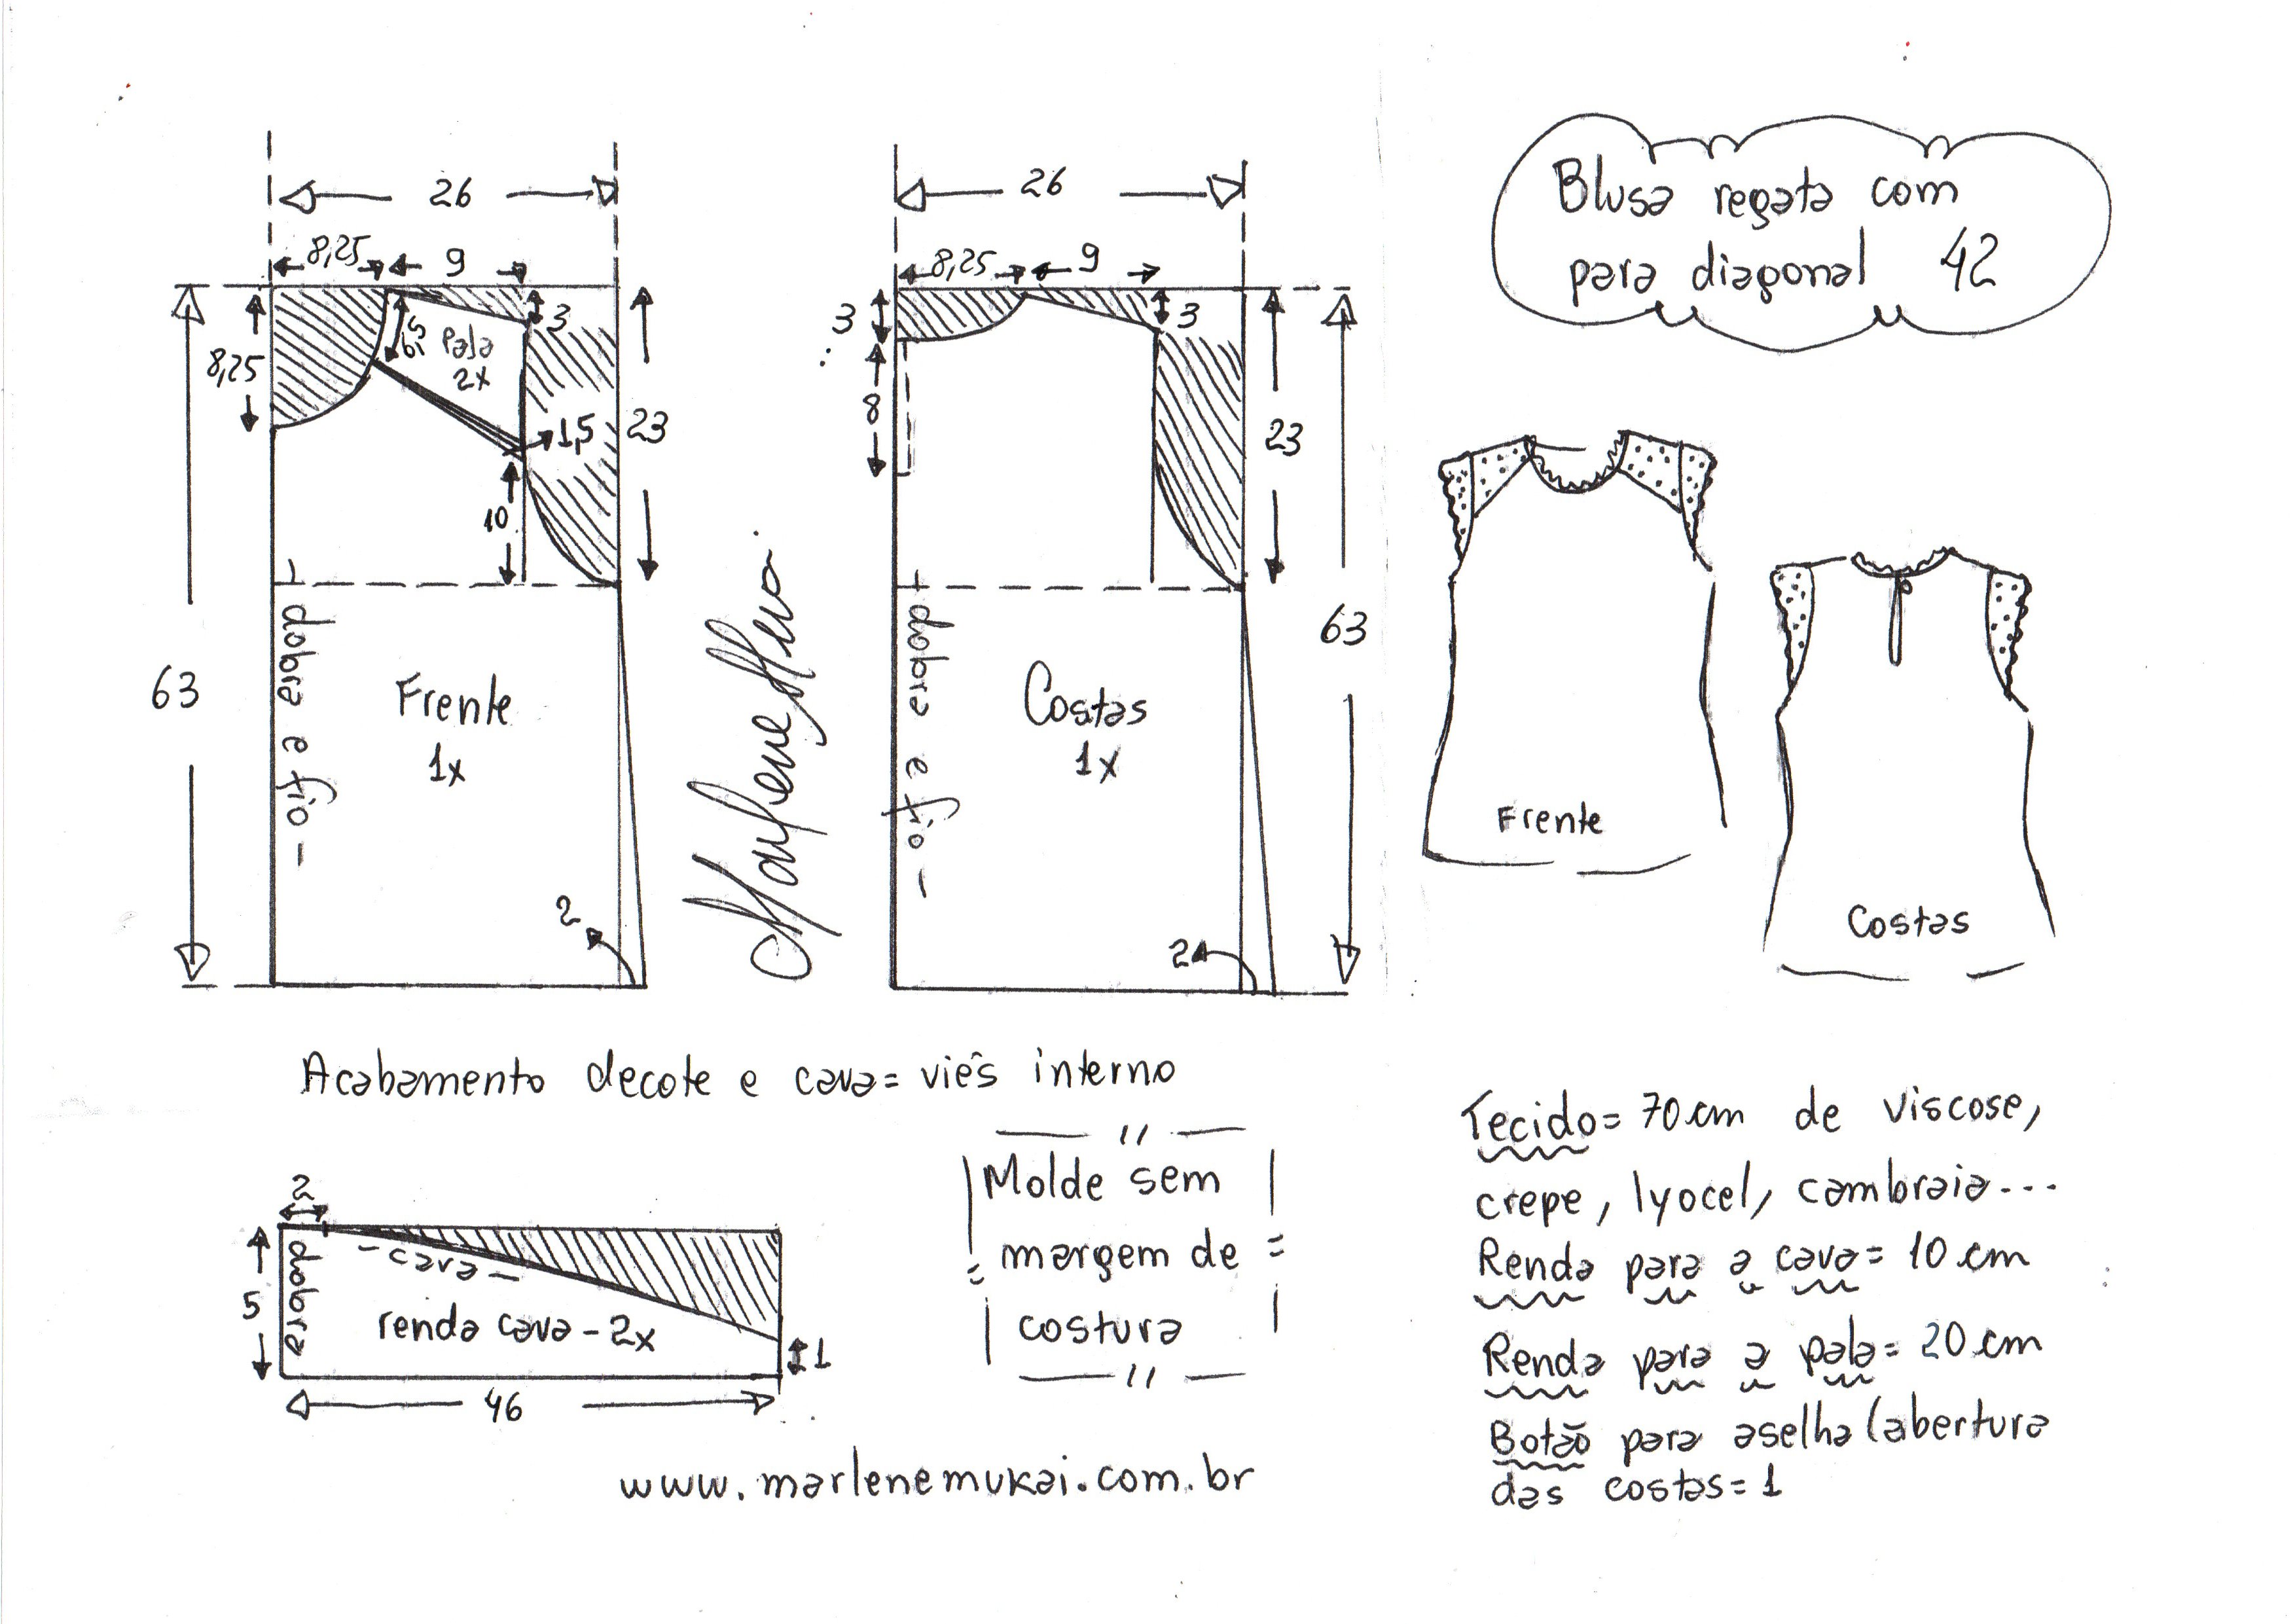 Blusa regata com
para diagonal 42
26
8,25 9
3
6,5
Pala
2x
8,25
1,5
23
10
63
dobra e fio
Frente
1x
2
26
8,25 9
3
3
8
23
63
dobra e fio
Costas
1x
2
Frente
Costas
Acabamento decote e cava= viés interno
2
5
dobra
-cava-
renda cava-2x
1
46
Molde sem
margem de
costura
Tecido= 70cm de viscose,
crepe, lyocel, cambraia...
Renda para a cava= 10cm
Renda para a pala= 20cm
Botão para aselha (abertura
das costas= 1
www.marlenemukai.com.br